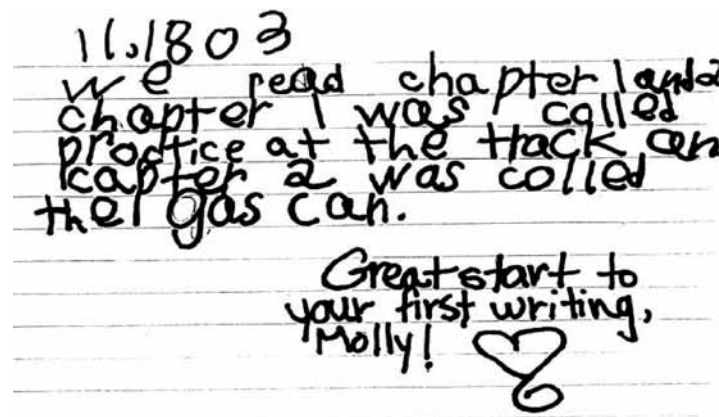 11.18 03
we read chapter 1 and 2
chapter 1 was called
practice at the track an
capter 2 was colled
the gas can.
Great start to
your first writing,
Molly!